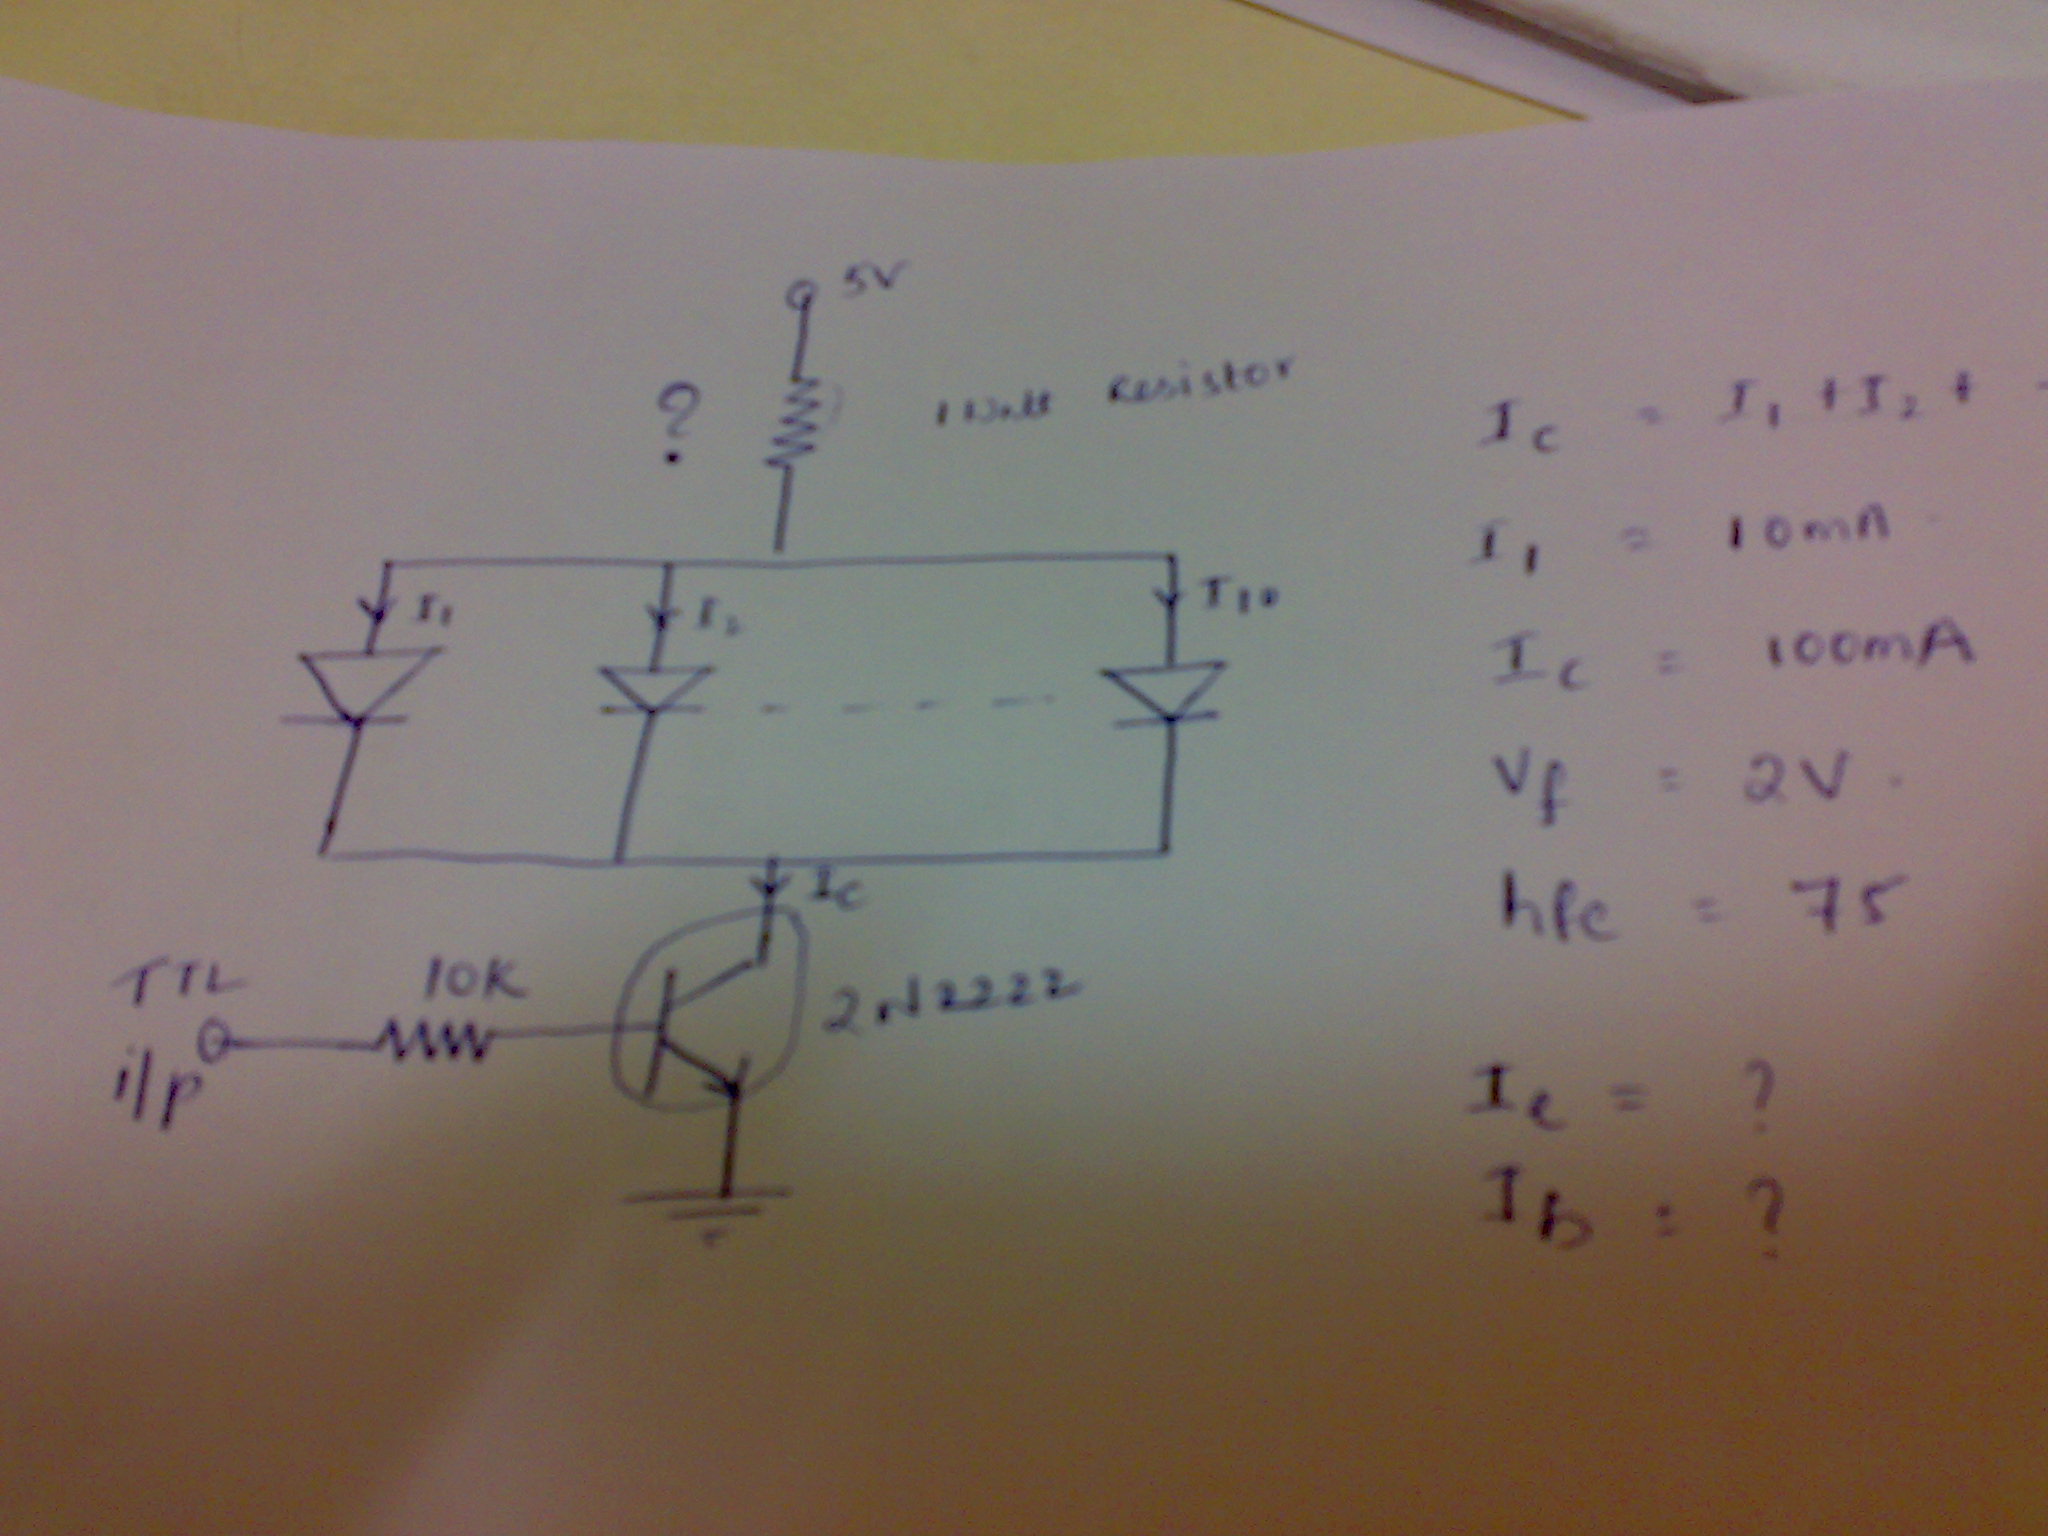 5V
? 1 Watt Resistor
I1 I2 I10
Ic
TTL 10K 2N2222
i/p
Ic = I1 + I2 +
I1 = 10mA
Ic = 100mA
Vf = 2V.
hfe = 75
Ie = ?
Ib = ?